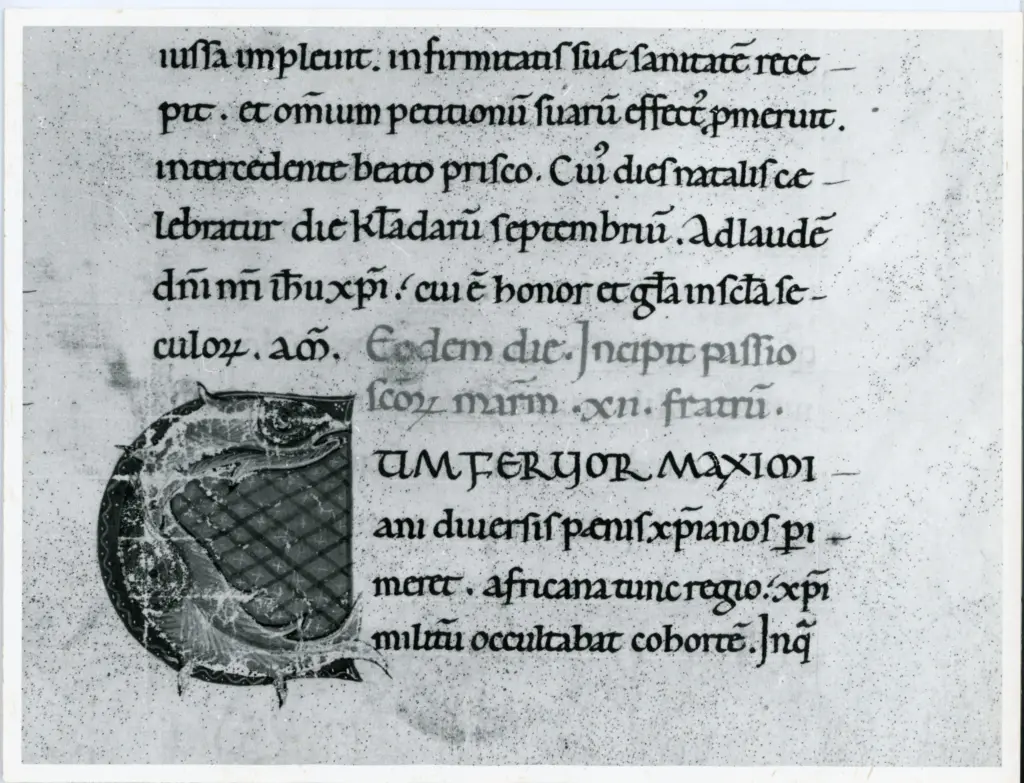 iussa impleuit. infirmitatis suę sanitatē rece
pit. et om̄ium petitionū suarū effectꝰ ꝓmeruit.
intercedente beato prisco. Cuiꝰ dies natalis ce
lebratur die kl̄adarū septembriū. Ad laudē
dn̄i nr̄i ih̄u xp̄i. cui ē honor et gl̄a in scl̄a se-
culoꝝ. am̄. Eodem die. Incipit passio
sc̄oꝝ mar̄m .xii. fratrū.
CUM FERUOR MAXIMI
ani diuersis pęnis xp̄ianos ꝑi
meret. africana tunc regio. xp̄i
militū occultabat cohortē. Inq̄